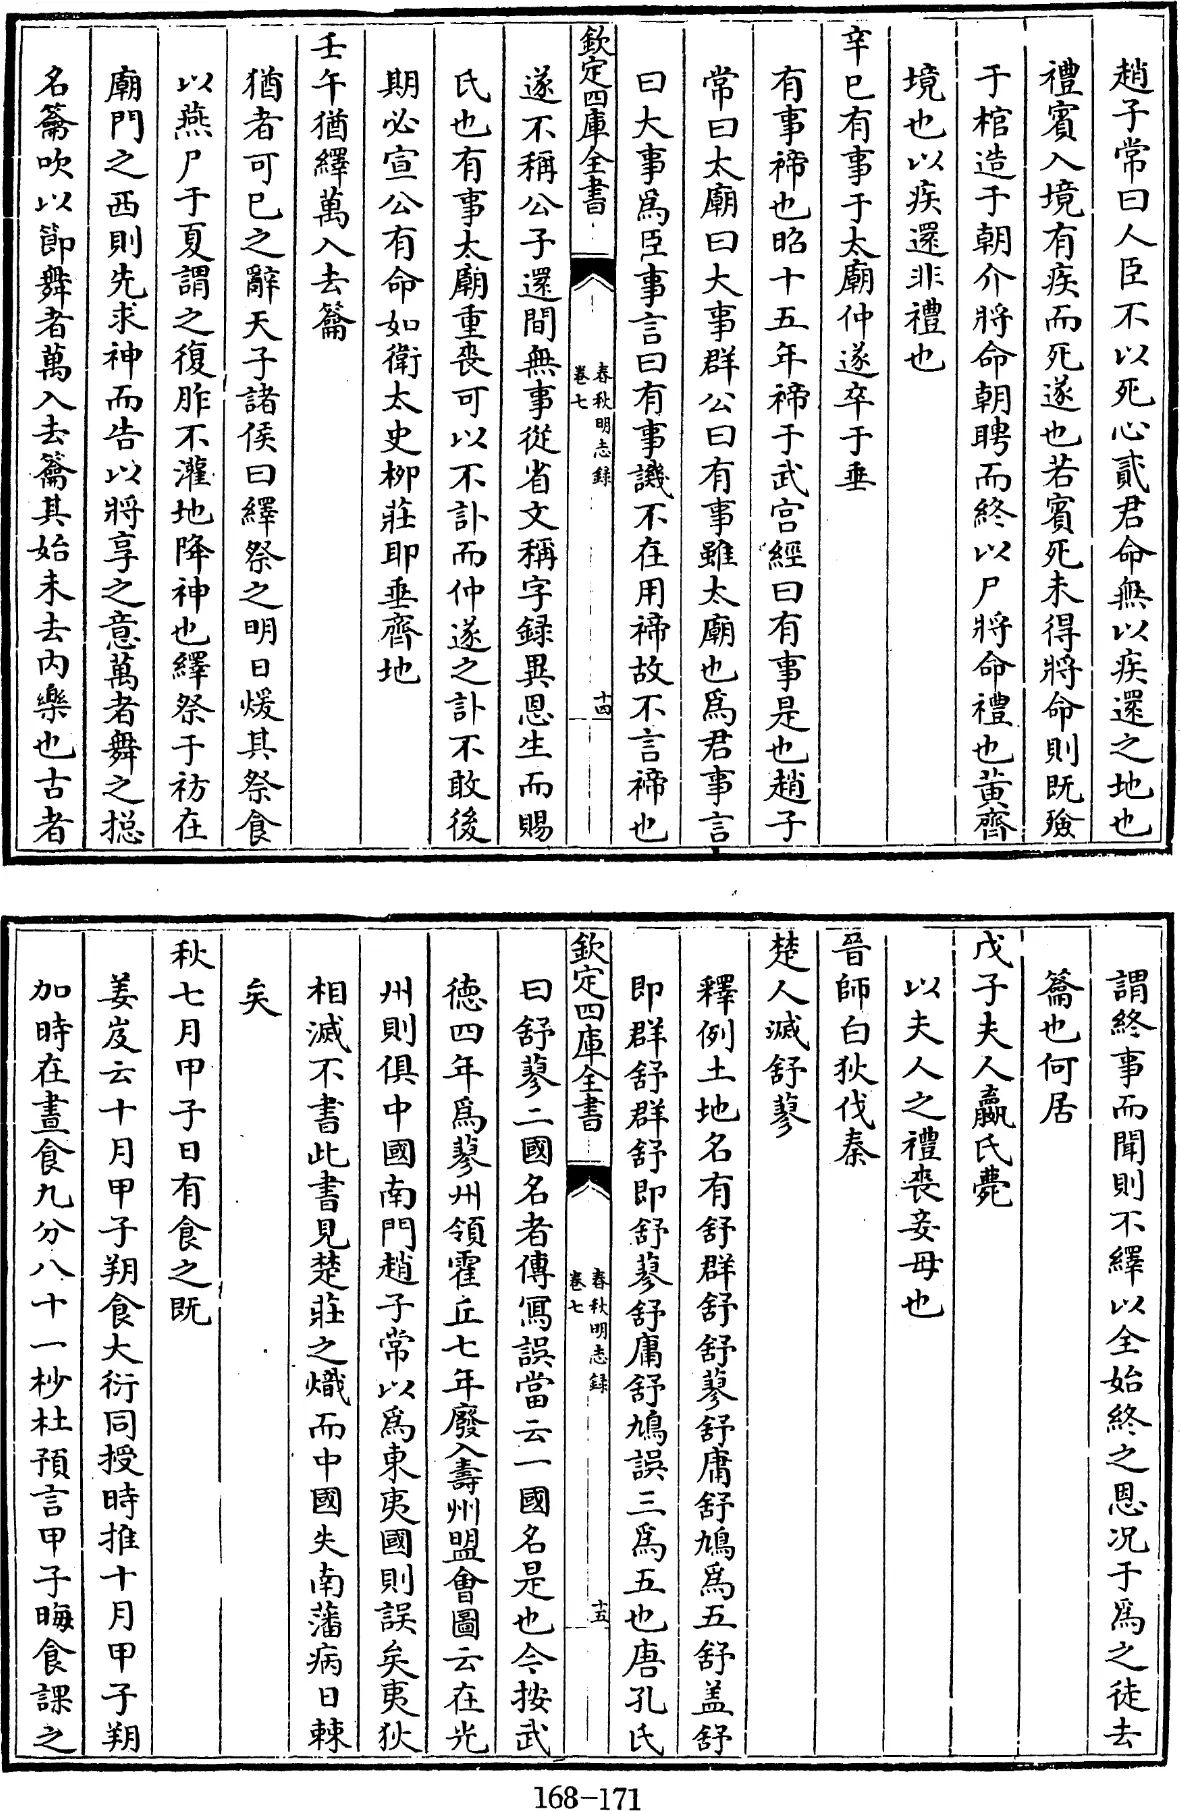 趙子常曰人臣不以死心貳君命無以疾還之地也
禮賓入境有疾而死遂也若賓死未得將命則既殮
于棺造于朝介將命朝聘而終以尸將命禮也黃齊
境也以疾還非禮也
辛巳有事于太廟仲遂卒于垂
有事禘也昭十五年禘于武宮經曰有事是也趙子
常曰太廟曰大事群公曰有事雖太廟也爲君事言
曰大事爲臣事言曰有事譏不在用禘故不言禘也
欽定四庫全書
春秋明志録
卷七
十四
遂不稱公子還間無事從省文稱字録異恩生而賜
氏也有事太廟重喪可以不訃而仲遂之訃不敢後
期必宣公有命如衛太史柳莊耶垂齊地
壬午猶繹萬入去籥
猶者可已之辭天子諸侯曰繹祭之明日煖其祭食
以燕尸于夏謂之復胙不灌地降神也繹祭于祊在
廟門之西則先求神而告以將享之意萬者舞之揔
名籥吹以節舞者萬入去籥其始未去內樂也古者
謂終事而聞則不繹以全始終之恩况于爲之徒去
籥也何居
戊子夫人嬴氏薨
以夫人之禮喪妾母也
晉師白狄伐秦
楚人滅舒蓼
釋例土地名有舒群舒舒蓼舒庸舒鳩爲五舒盖舒
即群舒群舒即舒蓼舒庸舒鳩誤三爲五也唐孔氏
欽定四庫全書
春秋明志録
卷七
十五
曰舒蓼二國名者傳寫誤當云一國名是也今按武
德四年爲蓼州領霍丘七年廢入壽州盟會圖云在光
州則俱中國南門趙子常以爲東夷國則誤矣夷狄
相滅不書此書見楚莊之熾而中國失南藩病日棘
矣
秋七月甲子日有食之既
姜岌云十月甲子朔食大衍同授時推十月甲子朔
加時在晝食九分八十一杪杜預言甲子晦食課之
168-171